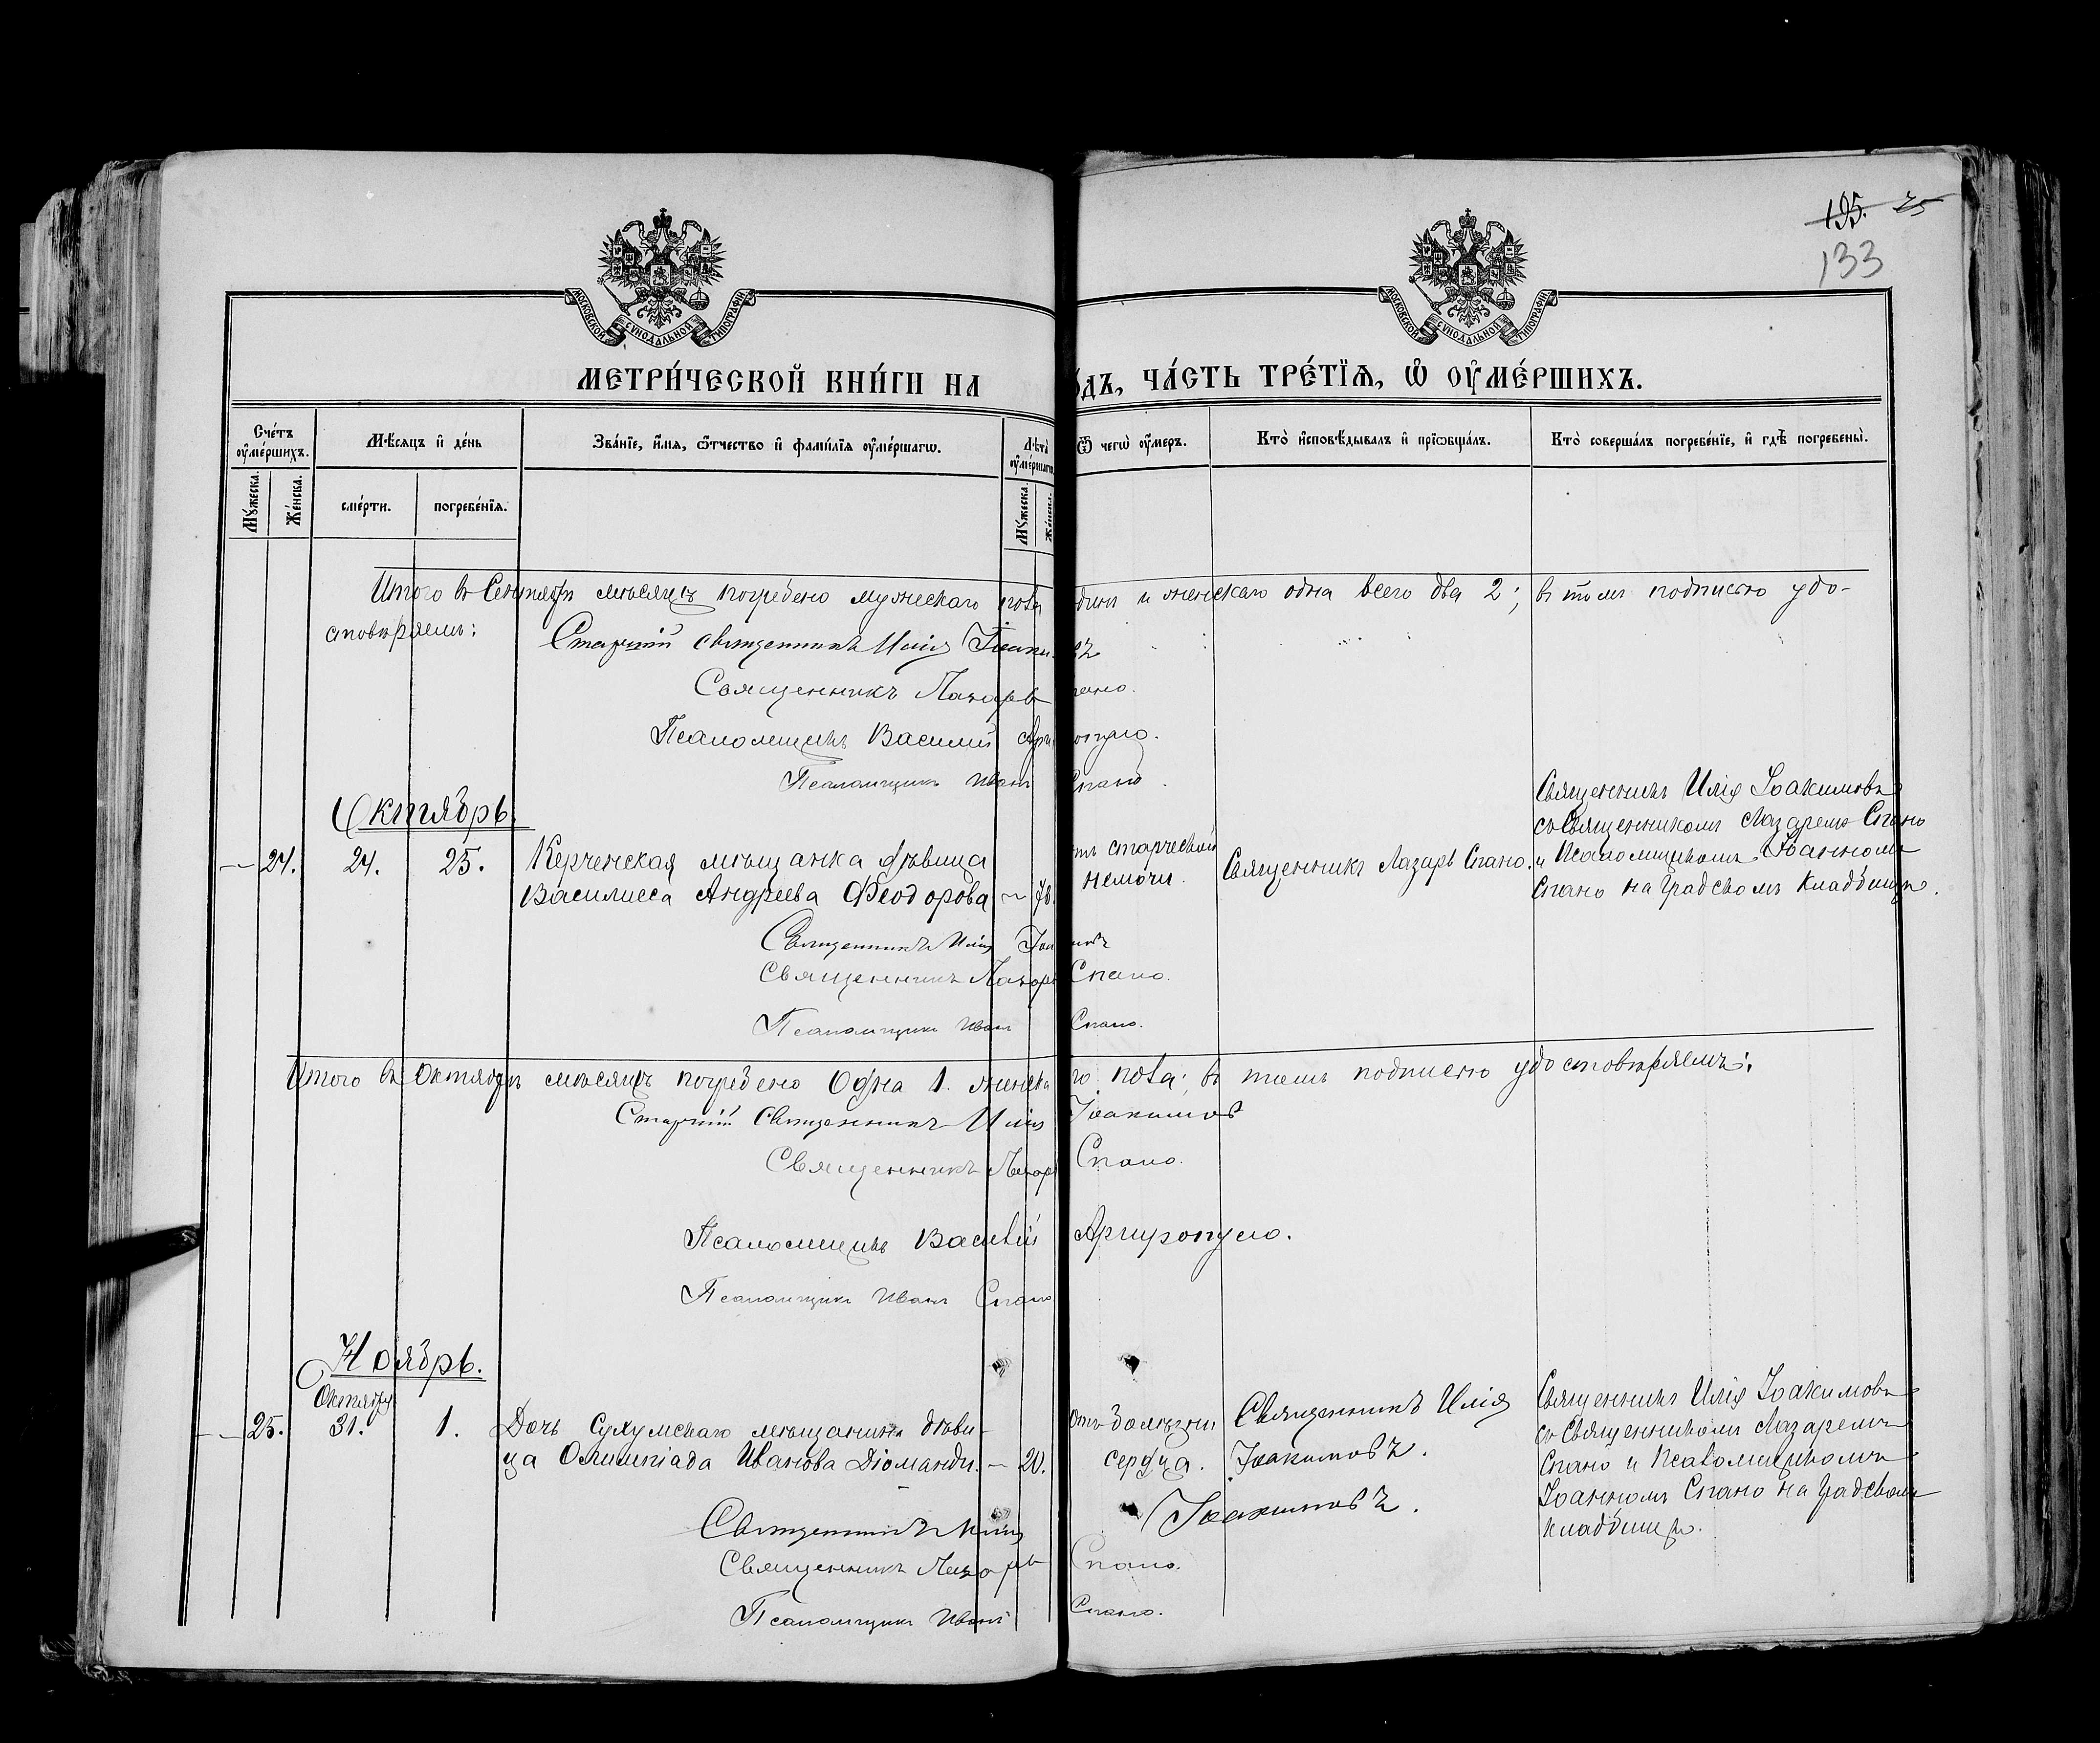 195. 25
133
МОСКОВСКОЙ СѴНОДАЛЬНОЙ ТИПОГРАФІИ
МОСКОВСКОЙ СѴНОДАЛЬНОЙ ТИПОГРАФІИ
МЕТРИ́ЧЕСКОЙ КНИ́ГИ НА
о́дъ, ЧА́СТЬ ТРЕ́ТЇѦ, Ѡ҆ ОУ҆МЕ́РШИХЪ.
Сче́тъ оу҆ме́ршихъ.
Мѣ́сяцъ и҆ де́нь
Зва́нїе, и҆́мѧ, ѻ҆́тчество и҆ фами́лїѧ оу҆ме́ршагѡ.
Лѣ́та оу҆ме́ршагѡ
Ѿ чегѡ̀ оу҆́меръ.
Кто̀ и҆сповѣ́дывалъ и҆ прїѡбща́лъ.
Кто̀ соверша́лъ погребе́нїе, и҆ гдѣ̀ погребены̀.
Мꙋ́жеска.
Же́нска.
сме́рти.
погребе́нїѧ.
Мꙋ́жеска.
Же́нска.
Итого въ Сентябрѣ мѣсяцѣ погребено мужескаго пола одинъ и женскаго одна всего два 2; въ томъ подписью удо-
стовѣряемъ:
Старшій священникъ Илія
Священникъ Лазарь Спано.
Псаломщикъ Василій
Псаломщикъ Иванъ Спано.
Октябрь.
— 24. 24. 25. Керченская мѣщанка дѣвица
Василисса Андреева Феодорова — 78.
старческой
немочи.
Священникъ Лазарь Спано.
Священникъ Илія Іоакимовъ
съ Священникомъ Лазаремъ Спано
и Псаломщикомъ Іоанномъ
Спано на Градскомъ кладбищѣ.
Священникъ Илія
Священникъ Лазарь Спано.
Псаломщикъ Иванъ Спано.
Итого въ Октябрѣ мѣсяцѣ погребено Одна 1. женскаго пола; въ томъ подписью удостовѣряемъ:
Старшій Священникъ Илія Іоакимовъ
Священникъ Лазарь Спано.
Псаломщикъ Василій Аргиропуло.
Псаломщикъ Иванъ Спано
Ноябрь.
Октября
— 25. 31. 1. Дочь Сухумскаго мѣщанина дѣви-
ца Олимпіада Иванова Діоманди. — 20.
Отъ болѣзни
сердца.
Священникъ Илія
Іоакимовъ.
Священникъ Илія Іоакимовъ
съ Священникомъ Лазаремъ
Спано и Псаломщикомъ
Іоанномъ Спано на Градскомъ
кладбищѣ.
Священникъ Илія Іоакимовъ.
Священникъ Лазарь Спано.
Псаломщикъ Иванъ Спано.